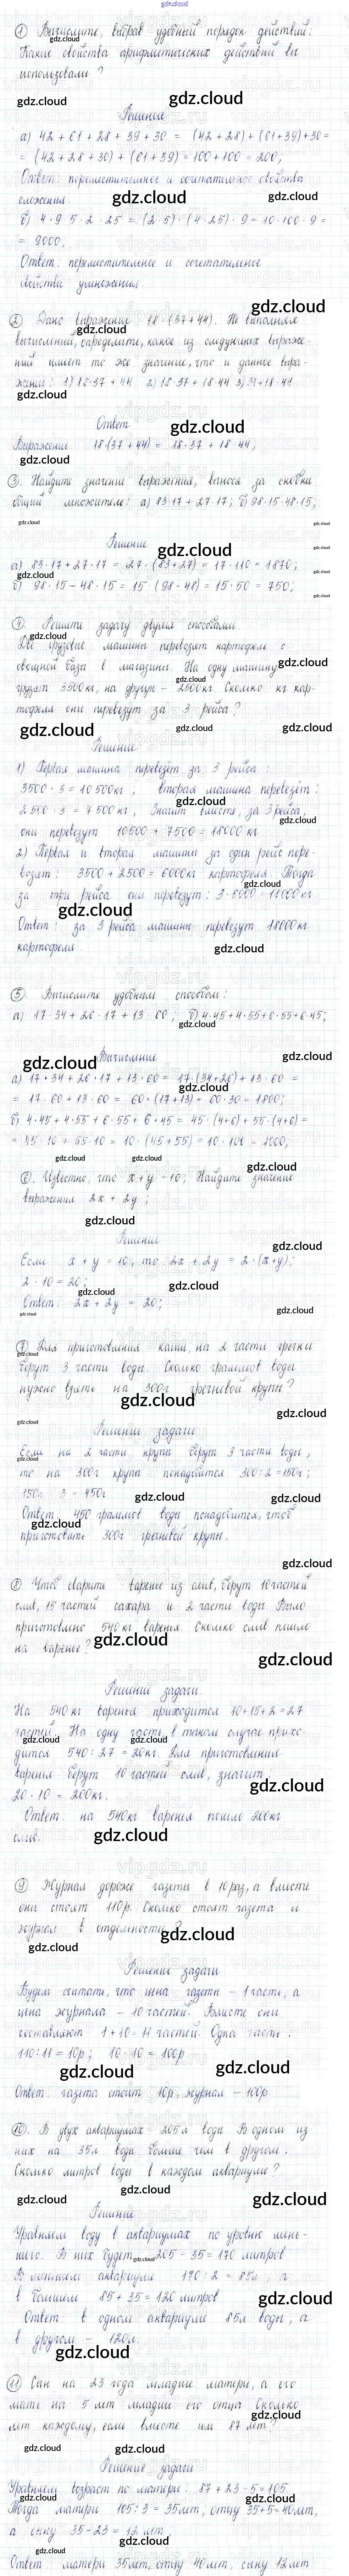 gdz.cloud
① Вычислите, выбрав удобный порядок действий:
Какие свойства арифметических действий вы
использовали?
Решение
а) 42 + 61 + 28 + 39 + 30 = (42 + 28) + (61 + 39) + 30 =
= (42 + 28 + 30) + (61 + 39) = 100 + 100 = 200;
Ответ: переместительное и сочетательное свойства
сложения.
б) 4 · 9 · 5 · 2 · 25 = (2 · 5) · (4 · 25) · 9 = 10 · 100 · 9 =
= 9000;
Ответ: переместительное и сочетательное
свойства умножения.
② Дано выражение 18 · (37 + 44). Не выполняя
вычислений, определите, какое из следующих выраже-
ний имеет то же значение, что и данное выра-
жение: 1) 18·37 + 44 2) 18·37 + 18·44 3) 37 + 18·44
Ответ
Выражение 18·(37 + 44) = 18·37 + 18·44;
③. Найдите значение выражения, вынося за скобки
общий множитель: а) 83·17 + 27·17; б) 98·15 - 48·15;
Решение
а) 83·17 + 27·17 = 27· (83+27) = 17·110 = 1870;
б) 98·15 - 48·15 = 15 (98 - 48) = 15·50 = 750;
④ Решите задачу двумя способами
Две грузовые машины перевозят картофель с
овощной базы в магазины. На одну машину
грузят 3500 кг, на другую - 2500 кг Сколько кг кар-
тофеля они перевезут за 3 рейса?
Решение
1) Первая машина перевезёт за 3 рейса:
3500 · 3 = 10500 кг; вторая машина перевезёт:
2500 · 3 = 7500 кг, Значит вместе, за 3 рейса,
они перевезут 10500 + 7500 = 18000 кг
2) Первая и вторая машины за один рейс пере-
возят: 3500 + 2500 = 6000 кг картофеля Тогда
за три рейса они перевезут: 3·6000 = 18000 кг
Ответ: за 3 рейса машины перевезут 18000 кг
картофеля
⑤ Вычислите удобным способом:
а) 17·34 + 26·17 + 13·60; б) 4·45 + 4·55 + 6·55 + 6·45;
Вычисление
а) 17·34 + 26·17 + 13·60 = 17·(34+26) + 13·60 =
= 17·60 + 13·60 = 60·(17+13) = 60·30 = 1800;
б) 4·45 + 4·55 + 6·55 + 6·45 = 45·(4+6) + 55·(4+6) =
= 45·10 + 55·10 = 10·(45+55) = 10·100 = 1000;
⑥. Известно, что x + y = 10; Найдите значение
выражения 2x + 2y;
Решение
Если x + y = 10, то 2x + 2y = 2·(x+y);
2·10 = 20;
Ответ: 2x + 2y = 20;
⑦ Для приготовления каши, на 2 части гречки
берут 3 части воды. Сколько граммов воды
нужно взять на 300г гречневой крупы?
Решение задачи
Если на 2 части крупы берут 3 части воды,
то на 300г крупы понадобится 300:2 = 150г;
150 · 3 = 450г
Ответ 450 граммов воды понадобится, чтоб
приготовить 300г гречневой крупы.
⑧ Чтоб сварить варенье из слив, берут 10 частей
слив, 15 частей сахара и 2 части воды Было
приготовлено 540 кг варенья Сколько слив пошло
на варенье?
Решение задачи.
На 540 кг варенья приходится 10+15+2=27
частей. На одну часть в таком случае прихо-
дится 540:27 = 20кг. Для приготовления
варенья берут 10 частей слив, значит:
20·10 = 200кг.
Ответ: на 540кг варенья пошло 200кг
слив.
⑨. Журнал дороже газеты в 10 раз, а вместе
они стоят 110р. Сколько стоят газета и
журнал в отдельности?
Решение задачи
Будем считать, что цена газеты - 1 часть, а
цена журнала - 10 частей. Вместе они
составляют 1 + 10 = 11 частей. Одна часть:
110:11 = 10р; 10·10 = 100р
Ответ: газета стоит 10р, журнал - 100р
⑩. В двух аквариумах 205л воды В одном из
них на 35л воды больше чем в другом.
Сколько литров воды в каждом аквариуме?
Решение
Уравняем воду в аквариумах по уровню мень-
шего. В них будет 205 - 35 = 170 литров
В меньшем аквариуме 170:2 = 85л, а
в большем 85 + 35 = 120 литров
Ответ в одном аквариуме 85л воды, а
в другом - 120л.
⑪ Сын на 23 года младше матери, а его
мать на 5 лет младше его отца Сколько
лет каждому, если вместе им 87 лет?
Решение задачи
Уравняем возраст по матери: 87 + 23 - 5 = 105
Тогда матери 105:3 = 35лет, отцу 35+5=40лет,
а сыну 35 - 23 = 12 лет.
Ответ матери 35лет, отцу 40лет, сыну 12лет